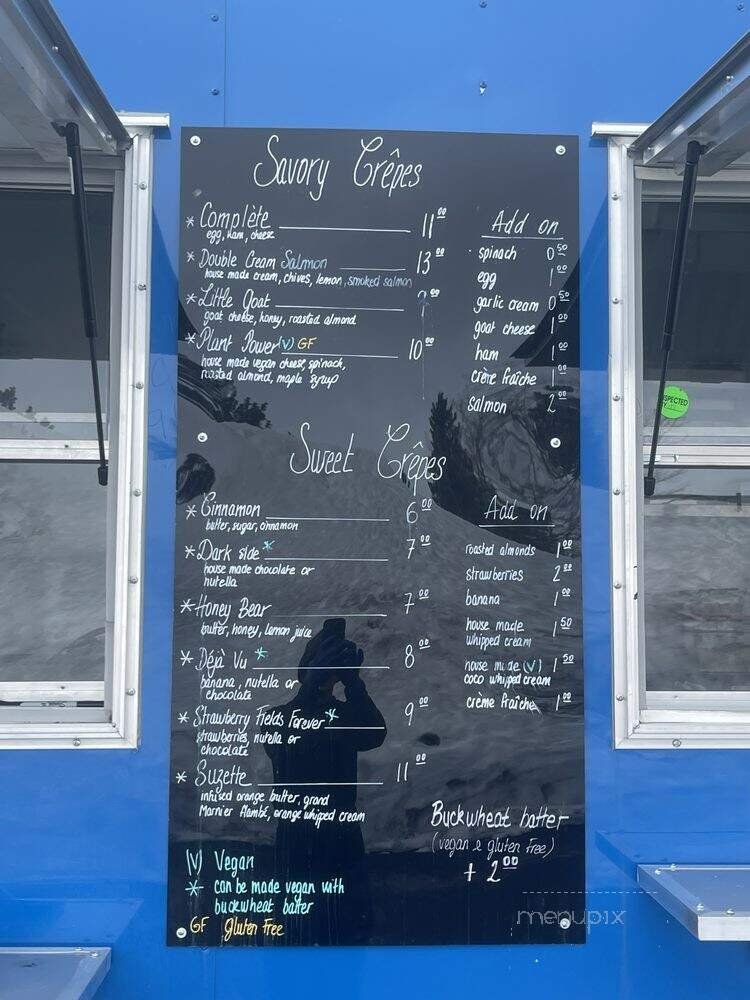 Savory Crêpes
* Complète 11 00
egg, ham, cheese
* Double Cream Salmon 13 00
house made cream, chives, lemon, smoked salmon
* Little Goat 9 00
goat cheese, honey, roasted almond
* Plant Power (V) GF 10 00
house made vegan cheese, spinach,
roasted almond, maple syrup
Add on
spinach 0 50
egg 1 00
garlic cream 0 50
goat cheese 1 00
ham 1 00
crème fraîche 1 00
salmon 2 00
Sweet Crêpes
* Cinnamon 6 00
butter, sugar, cinnamon
* Dark side * 7 00
house made chocolate or
nutella
* Honey Bear 7 00
butter, honey, lemon juice
* Déjà Vu * 8 00
banana, nutella or
chocolate
* Strawberry Fields Forever * 9 00
strawberries, nutella or
chocolate
* Suzette 11 00
infused orange butter, grand
Marnier Flambé, orange whipped cream
Add on
roasted almonds 1 00
strawberries 2 00
banana 1 00
house made 1 50
whipped cream
house made (V) 1 50
coco whipped cream
crème fraîche 1 00
Buckwheat batter
(vegan & gluten free)
+ 2 00
(V) Vegan
* can be made vegan with
buckwheat batter
GF Gluten Free
menupix